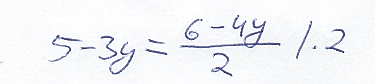 5-3y = \frac{6-4y}{2} /·2